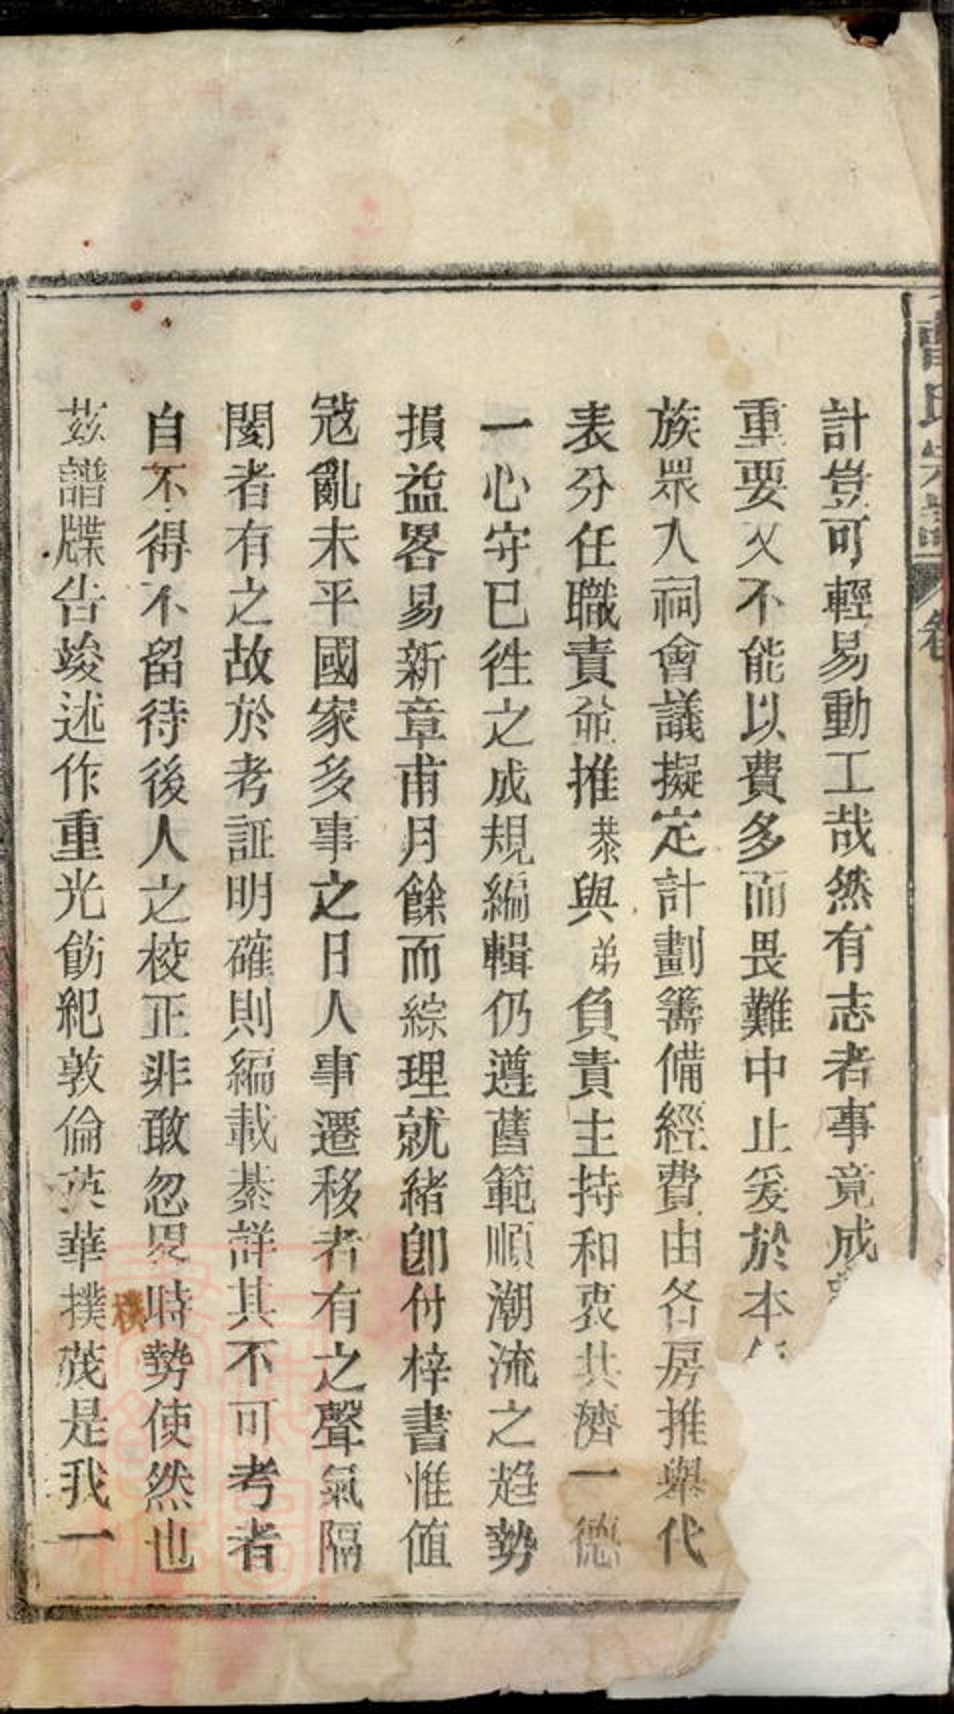 氏宗譜 卷
計豈可輕易動工哉然有志者事竟成
重要又不能以費多而畏難中止爰於本
族眾人祠會議擬定計劃籌備經費由各房推舉代
表分任職責僉推菾與弟負責主持和衷共濟一德
一心守已徃之成規編輯仍遵舊範順潮流之趋勢
損益畧易新章甫月餘而綜理就緒卽付梓書惟值
寇亂未平國家多事之日人事遷移者有之聲氣隔
閡者有之故於考証明確則編載綦詳其不可考者
自不得不留待後人之校正非敢忽畧時勢使然也
茲譜牒告竣述作重光飭紀敦倫英華撲茂是我一
樸